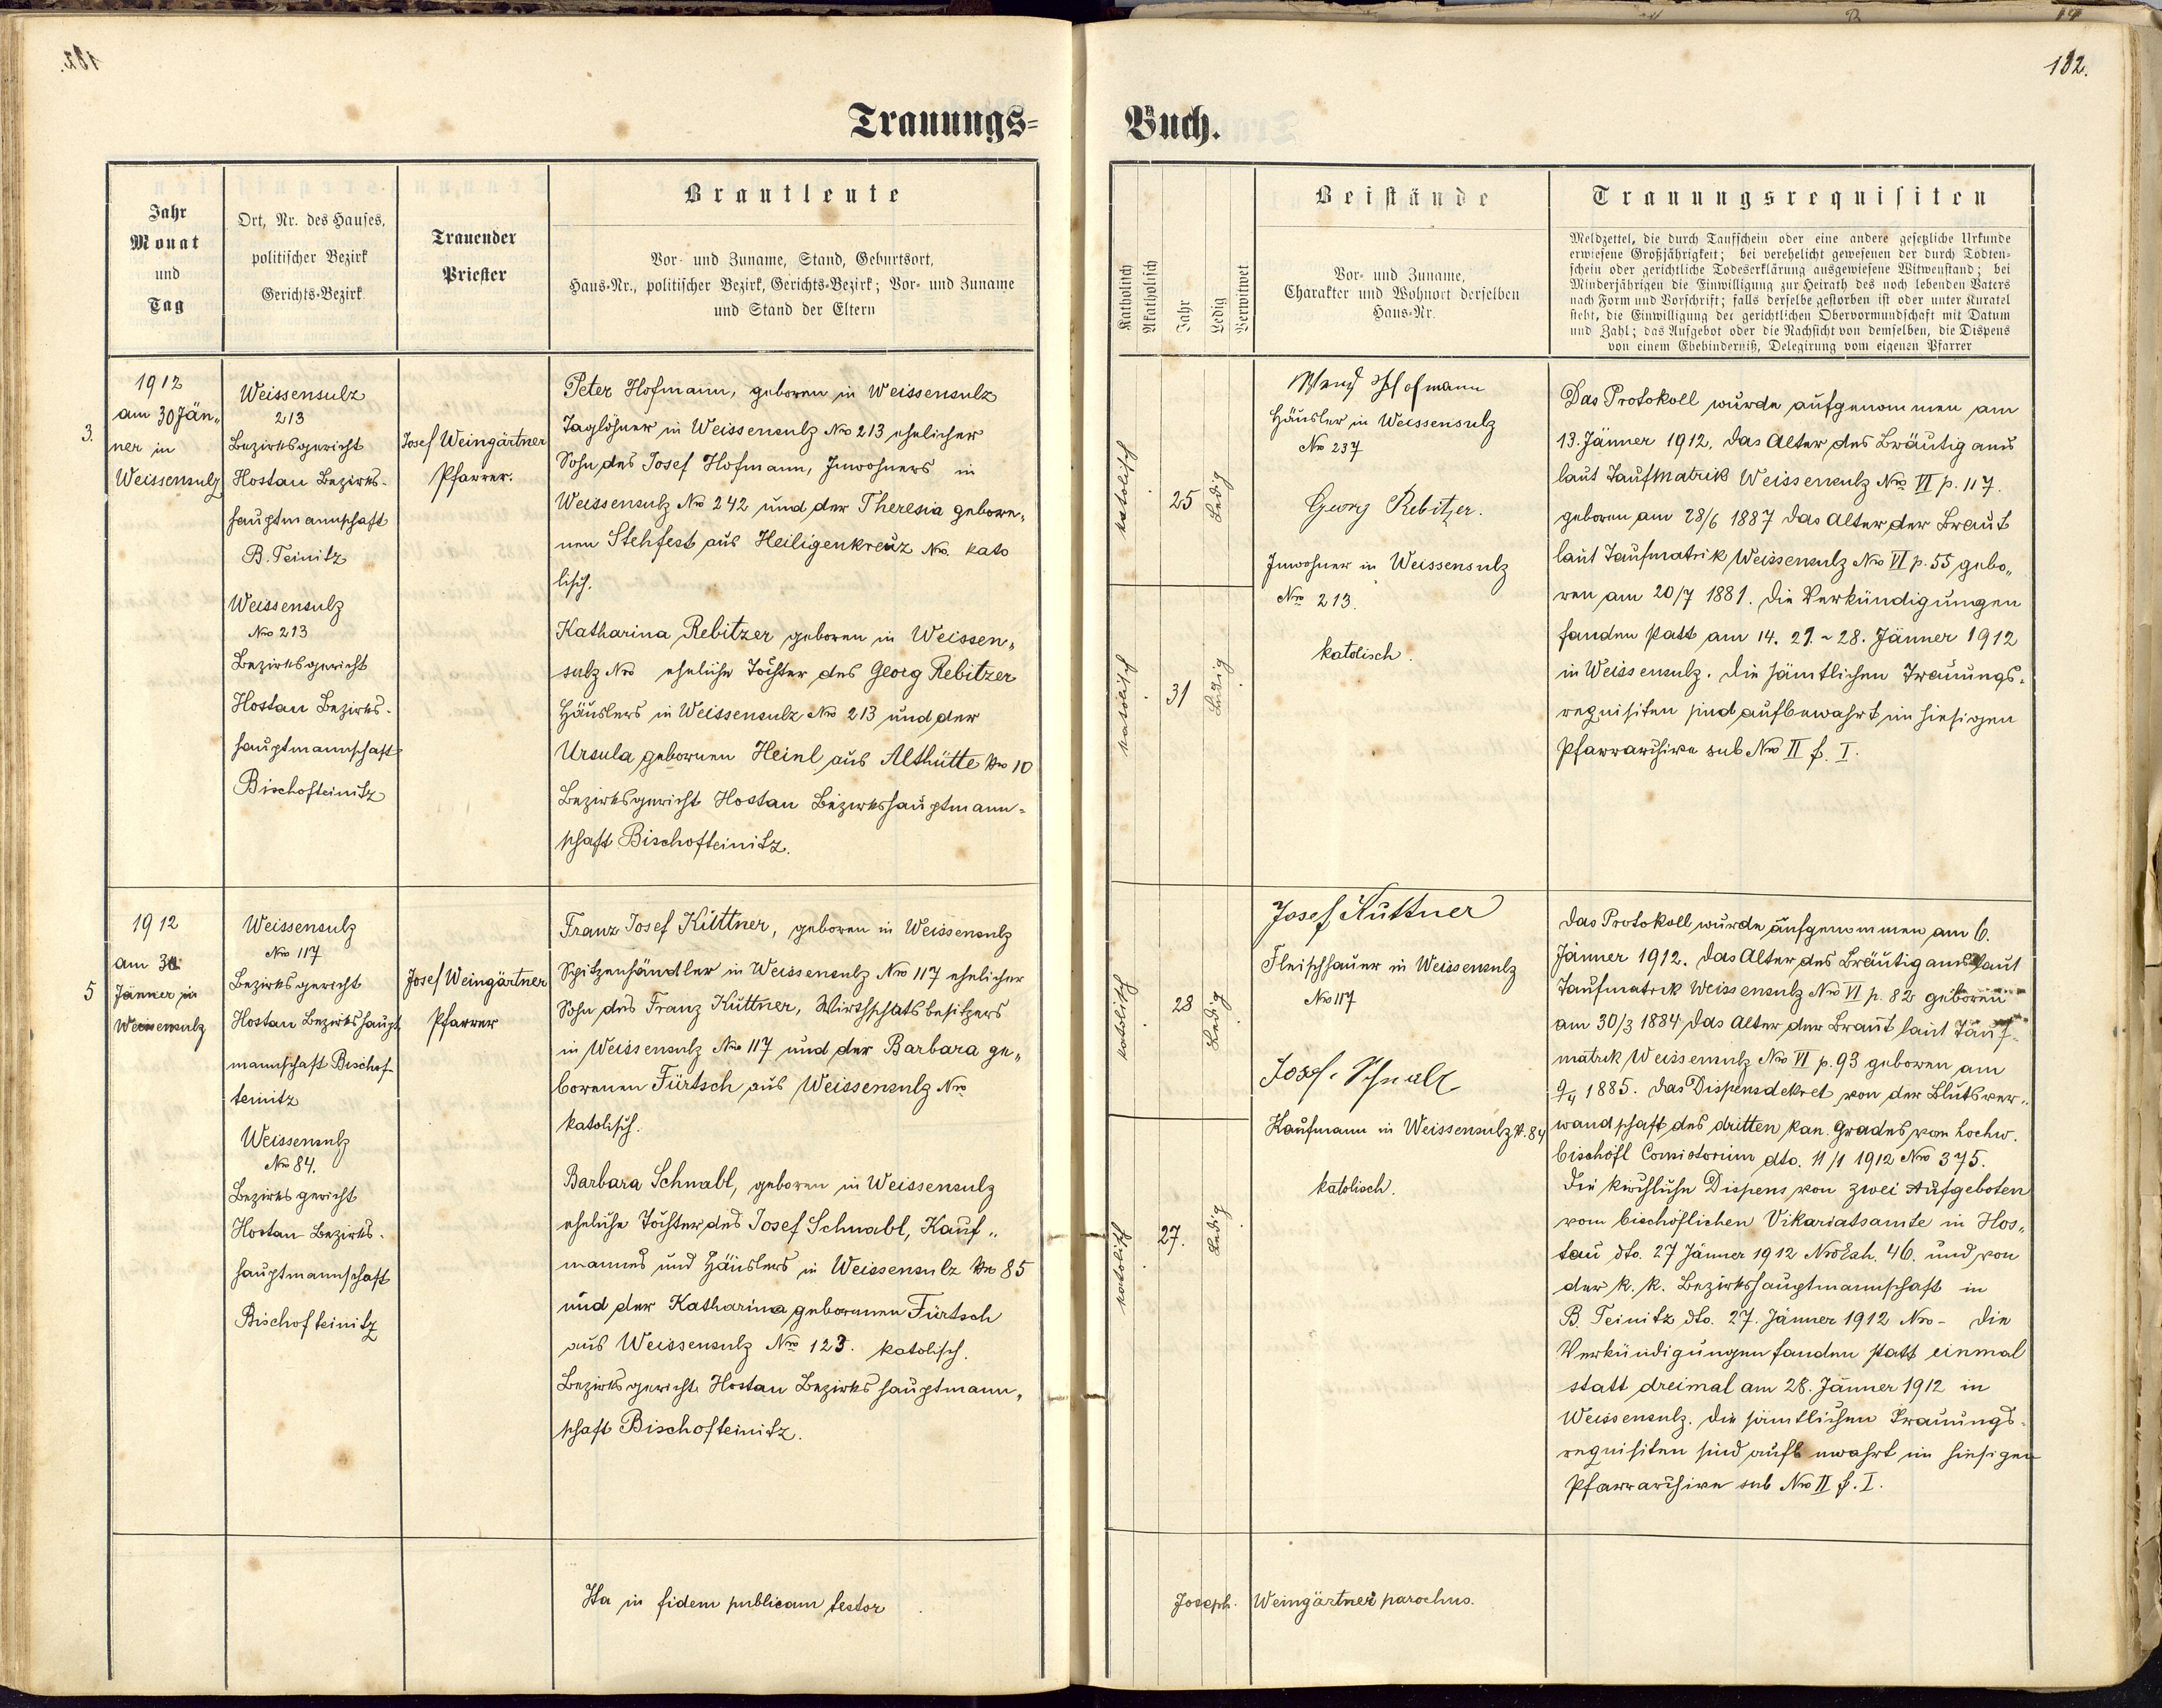 132.
Trauungs-
Buch.
Jahr
Monat
und
Tag
Ort, Nr. des Hauses,
politischer Bezirk
Gerichts-Bezirk
Trauender
Priester
Brautleute
Vor- und Zuname, Stand, Geburtsort,
Haus-Nr., politischer Bezirk, Gerichts-Bezirk; Vor- und Zuname
und Stand der Eltern
Katholisch
Akatholisch
Jahr
Ledig
Verwitwet
Beistände
Vor- und Zuname,
Charakter und Wohnort derselben
Haus-Nr.
Trauungsrequisiten
Meldzettel, die durch Taufschein oder eine andere gesetzliche Urkunde
erwiesene Großjährigkeit; bei verehelicht gewesenen der durch Todten-
schein oder gerichtliche Todeserklärung ausgewiesene Witwenstand; bei
Minderjährigen die Einwilligung zur Heirath des noch lebenden Vaters
nach Form und Vorschrift; falls derselbe gestorben ist oder unter Kuratel
steht, die Einwilligung der gerichtlichen Obervormundschaft mit Datum
und Zahl; das Aufgebot oder die Nachsicht von demselben, die Dispens
von einem Ehehinderniß, Delegirung vom eigenen Pfarrer
3.
1912
am 30 Jän„
ner in
Weissensulz
Weissensulz
213
Bezirksgericht
Hostau Bezirks-
hauptmannschaft
B. Teinitz
Weissensulz
Nro 213
Bezirksgericht
Hostau Bezirks-
hauptmannschaft
Bischofteinitz
Josef Weingärtner
Pfarrer.
Peter Hofmann, geboren in Weissensulz
Taglöhner in Weissensulz Nro 213 ehelicher
Sohn des Josef Hofmann, Inwohners in
Weissensulz Nro 242 und der Theresia gebore„
nen Stehfest aus Heiligenkreuz Nro. kato
lisch.
Katharina Rebitzer geboren in Weissen„
sulz Nro eheliche Tochter des Georg Rebitzer
Häuslers in Weissensulz Nro 213 und der
Ursula gebornen Heinl aus Althütte Nro 10
Bezirksgericht Hostau Bezirkshauptmann-
schaft Bischofteinitz.
katolisch
25
Ledig
katolisch
31
Ledig
Hofmann
Häusler in Weissensulz
No 237
Georg Rebitzer.
Inwohner in Weissensulz
Nro 213.
katolisch.
Das Protokoll wurde aufgenommen am
13. Jänner 1912. das Alter des Bräutigams
laut Taufmatrik Weissensulz Nro VI p. 117.
geboren am 28/6 1887 das Alter der Braut
laut Taufmatrik Weissensulz Nro VI p. 55 gebo„
ren am 20/7 1881. die Verkündigungen
fanden statt am 14. 21. 28. Jänner 1912
in Weissensulz. die sämtlichen Trauungs-
requisiten sind aufbewahrt im hiesigen
Pfarrarchive sub Nro II f. I.
5
1912
am
Jänner in
Weissensulz
Weissensulz
Nro 117
Bezirksgericht
Hostau Bezirkshaupt
mannschaft Bischof-
teinitz
Weissensulz
Nro 84.
Bezirksgericht
Hostau Bezirks-
hauptmannschaft
Bischofteinitz
Josef Weingärtner
Pfarrer
Franz Josef Küttner, geboren in Weissensulz
Spitzenhändler in Weissensulz Nro 117 ehelicher
Sohn des Franz Küttner, Wirthschatsbesitzers
in Weissensulz Nro 117 und der Barbara ge„
borenen Fürtsch aus Weissensulz Nro
katolisch.
Barbara Schnabl, geboren in Weissensulz
eheliche Tochter des Josef Schnabl, Kauf„
mannes und Häuslers in Weissensulz Nro 85
und der Katharina gebornen Fürtsch
aus Weissensulz Nro 123. katolisch.
Bezirksgericht Hostau Bezirkshauptmann„
schaft Bischofteinitz.
katolisch
28
Ledig
katolisch
27.
Ledig
Josef Küttner
Fleischhauer in Weissensulz
Nro 117
Josef Schnabl
Kaufmann in Weissensulz N. 84
katolisch.
das Protokoll wurde aufgenommen am 6.
Jänner 1912. das Alter des Bräutigams laut
Taufmatrik Weissensulz Nro VI p. 82 geboren
am 30/3 1884 das Alter der Braut laut Tauf-
matrik Weissensulz Nro VI p. 93 geboren am
1885. das Dispensdekret von der Blutsver„
wandschaft des dritten kan. Grades vom hochw.
bischöfl Consistorium dto. 11/1 1912 Nro 375.
die kirchliche Dispens von zwei Aufgeboten
vom bischöflichen Vikariatsamte in Hos„
tau dto. 27 Jänner 1912 Nro Exh. 46. und von
der k. k. Bezirkshauptmannschaft in
B. Teinitz dto. 27. Jänner 1912 Nro - die
Verkündigungen fanden statt einmal
statt dreimal am 28. Jänner 1912 in
Weissensulz. die sämtlichen Trauungs-
requisiten sind aufbewahrt im hiesigen
Pfarrarchive sub Nro II f. I.
Ita in fidem publicam testor
Joseph. Weingärtner parochus.